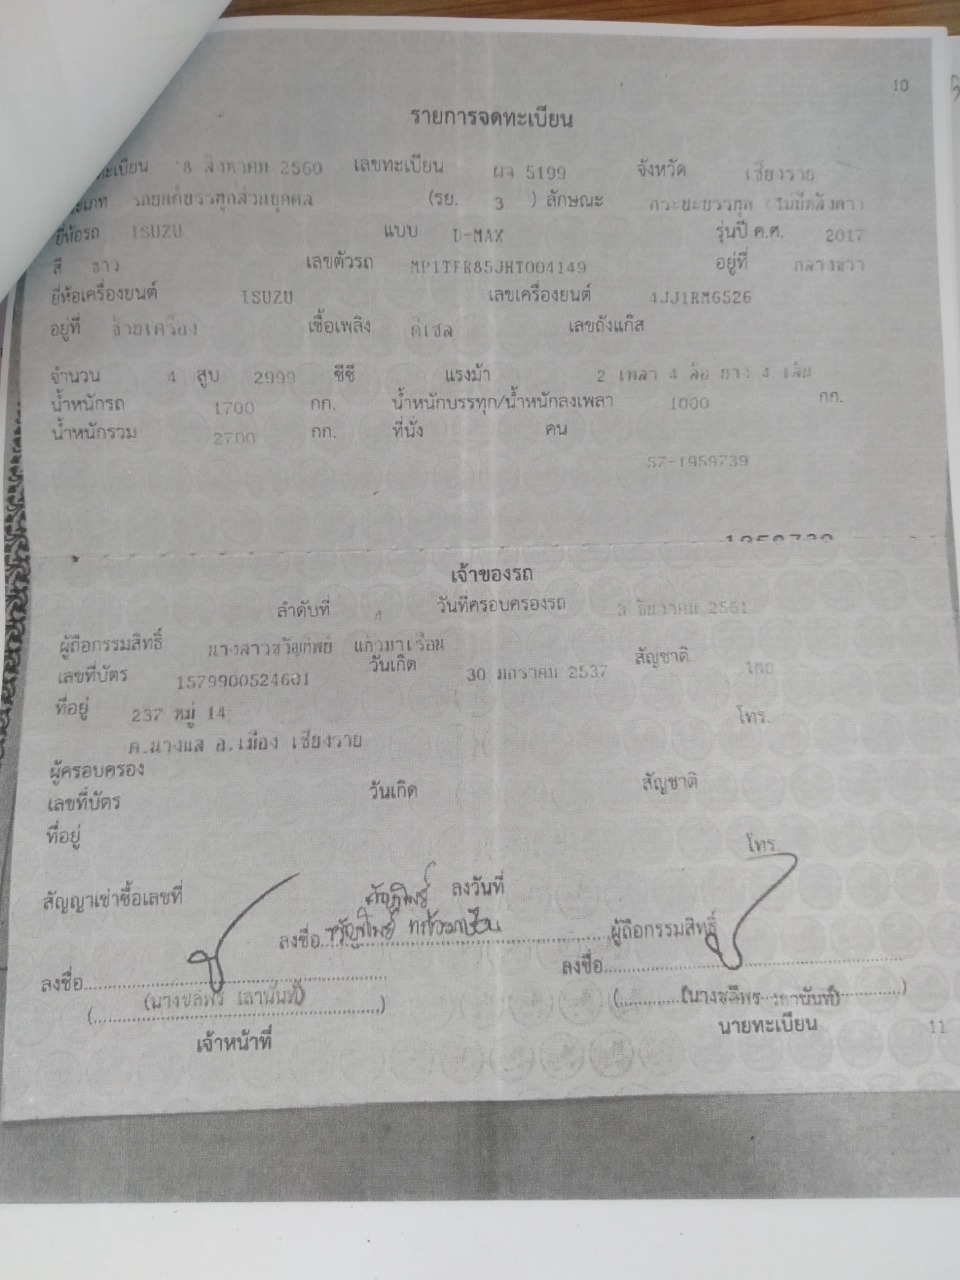 10
รายการจดทะเบียน
ทะเบียน 8 สิงหาคม 2560 เลขทะเบียน ผจ 5199 จังหวัด เชียงราย
รถยนต์บรรทุกส่วนบุคคล (รย. 3 ) ลักษณะ กระบะบรรทุก (ไม่มีหลังคา)
ยี่ห้อรถ ISUZU แบบ D-MAX รุ่นปี ค.ศ. 2017
สี ขาว เลขตัวรถ MP1TFR85JHT004149 อยู่ที่ กลางขวา
ยี่ห้อเครื่องยนต์ ISUZU เลขเครื่องยนต์ 4JJ1RM6526
อยู่ที่ ซ้ายเครื่อง เชื้อเพลิง ดีเซล เลขถังแก๊ส
จำนวน 4 สูบ 2999 ซีซี แรงม้า 2 เพลา 4 ล้อ ยาง 4 เส้น
น้ำหนักรถ 1700 กก. น้ำหนักบรรทุก/น้ำหนักลงเพลา 1000 กก.
น้ำหนักรวม 2700 กก. ที่นั่ง คน
57-1959739
เจ้าของรถ
ลำดับที่ 4 วันที่ครอบครองรถ 3 ธันวาคม 2561
ผู้ถือกรรมสิทธิ์ นางสาวขวัญทิพย์ แก้วมาเรือน
เลขที่บัตร 1579900524601 วันเกิด 30 มกราคม 2537 สัญชาติ ไทย
ที่อยู่ 237 หมู่ 14 โทร.
ต.นางแล อ.เมือง เชียงราย
ผู้ครอบครอง
เลขที่บัตร วันเกิด สัญชาติ
ที่อยู่
โทร.
สัญญาเช่าซื้อเลขที่ ลงวันที่
ลงชื่อ ขวัญทิพย์ แก้วมาเรือน ผู้ถือกรรมสิทธิ์
ลงชื่อ ลงชื่อ
(นางชลีพร เลานันท์) (นางชลีพร เลานันท์)
เจ้าหน้าที่ นายทะเบียน 11